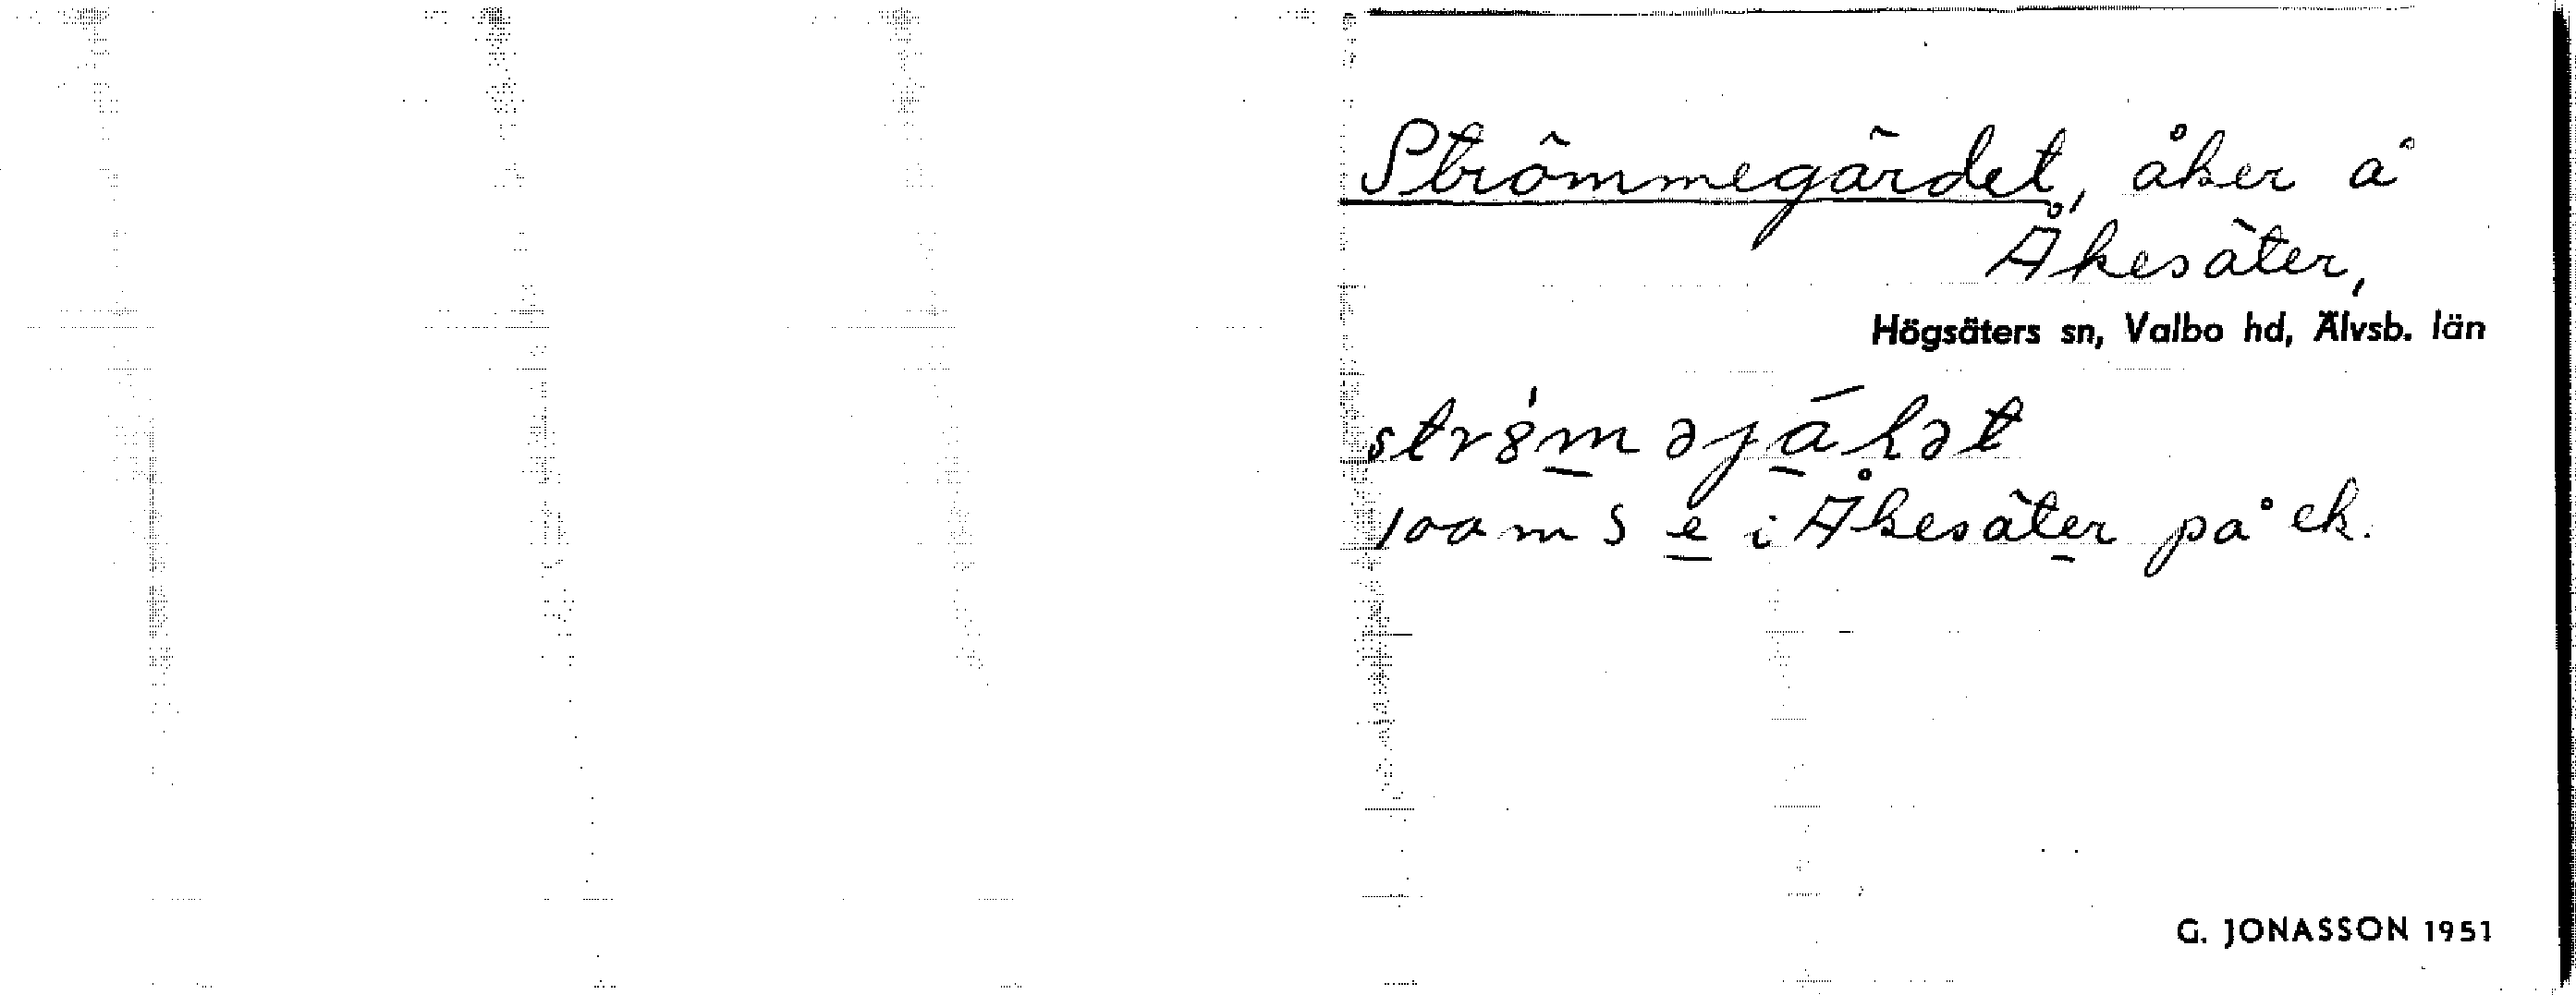 Strömmegärdet, åker å
Åkesäter,
Högsäters sn, Valbo hd, Älvsb. län
100 m S e i Åkesäter på ek.
G. JONASSON 1951